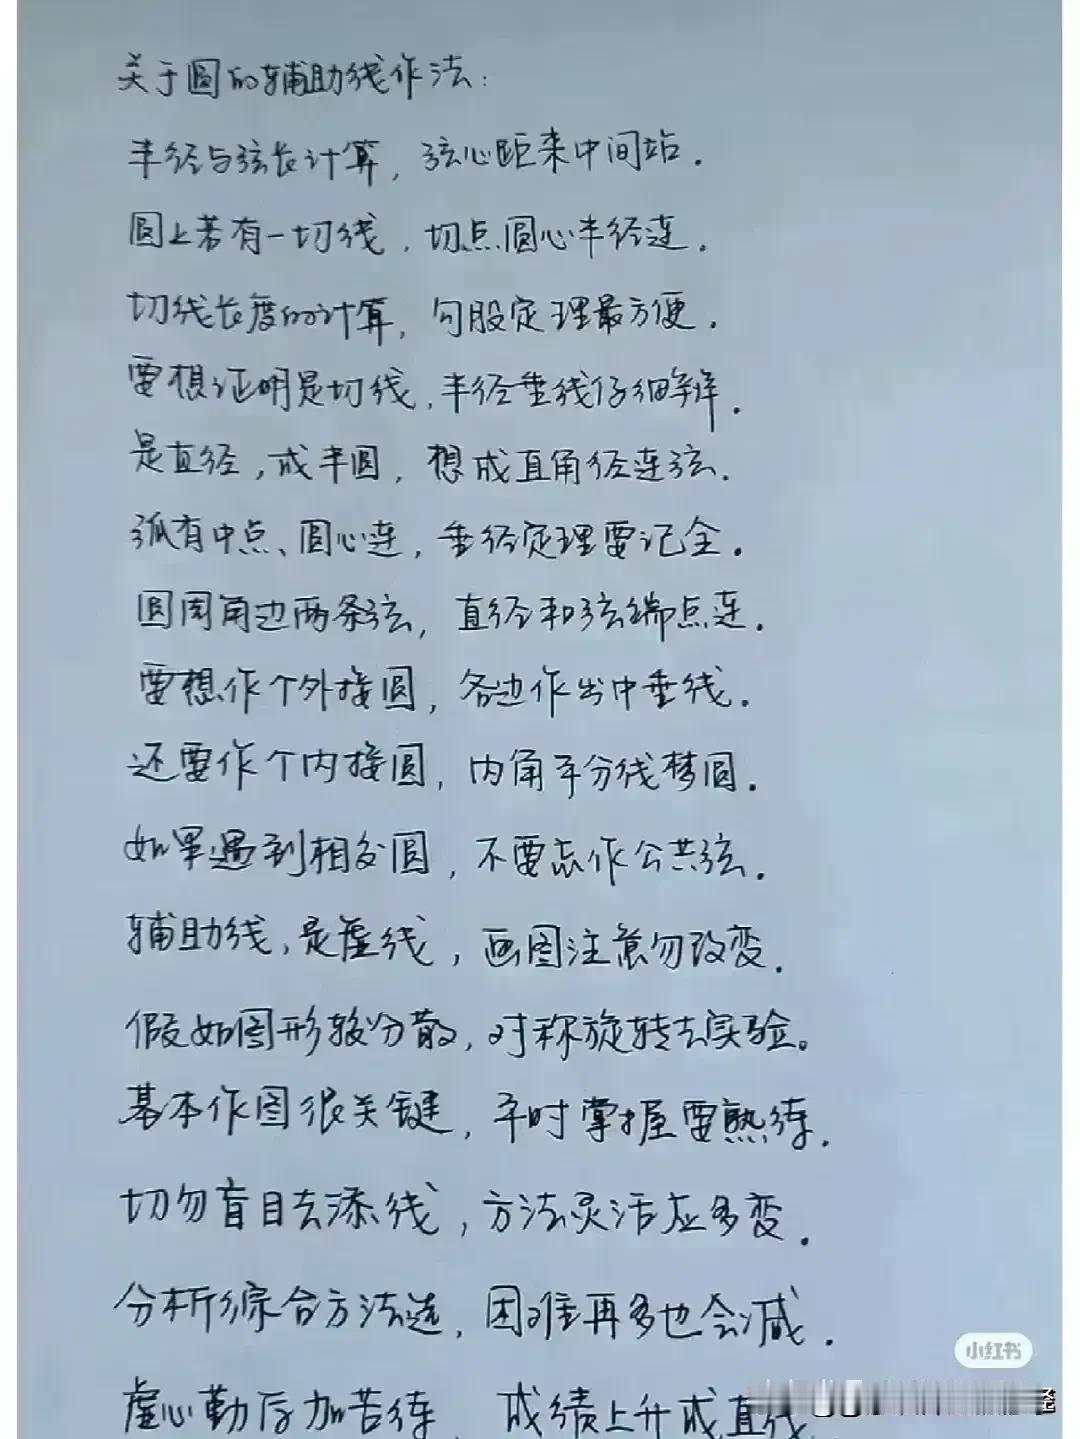 关于圆的辅助线作法:
半径与弦长计算,弦心距来中间站.
圆上若有一切线,切点圆心半径连.
切线长度的计算,勾股定理最方便.
要想证明是切线,半径垂线仔细辨.
是直径,成半圆,想成直角径连弦.
弧有中点、圆心连,垂径定理要记全.
圆周角边两条弦,直径和弦端点连.
要想作个外接圆,各边作出中垂线.
还要作个内接圆,内角平分线梦圆.
如果遇到相交圆,不要忘作公共弦.
辅助线,是虚线,画图注意勿改变.
假如图形较分散,对称旋转去实验。
基本作图很关键,平时掌握要熟练.
切勿盲目去添线,方法灵活应多变.
分析综合方法选,困难再多也会减.
虚心勤 加苦练 成绩上升成直线
小红书